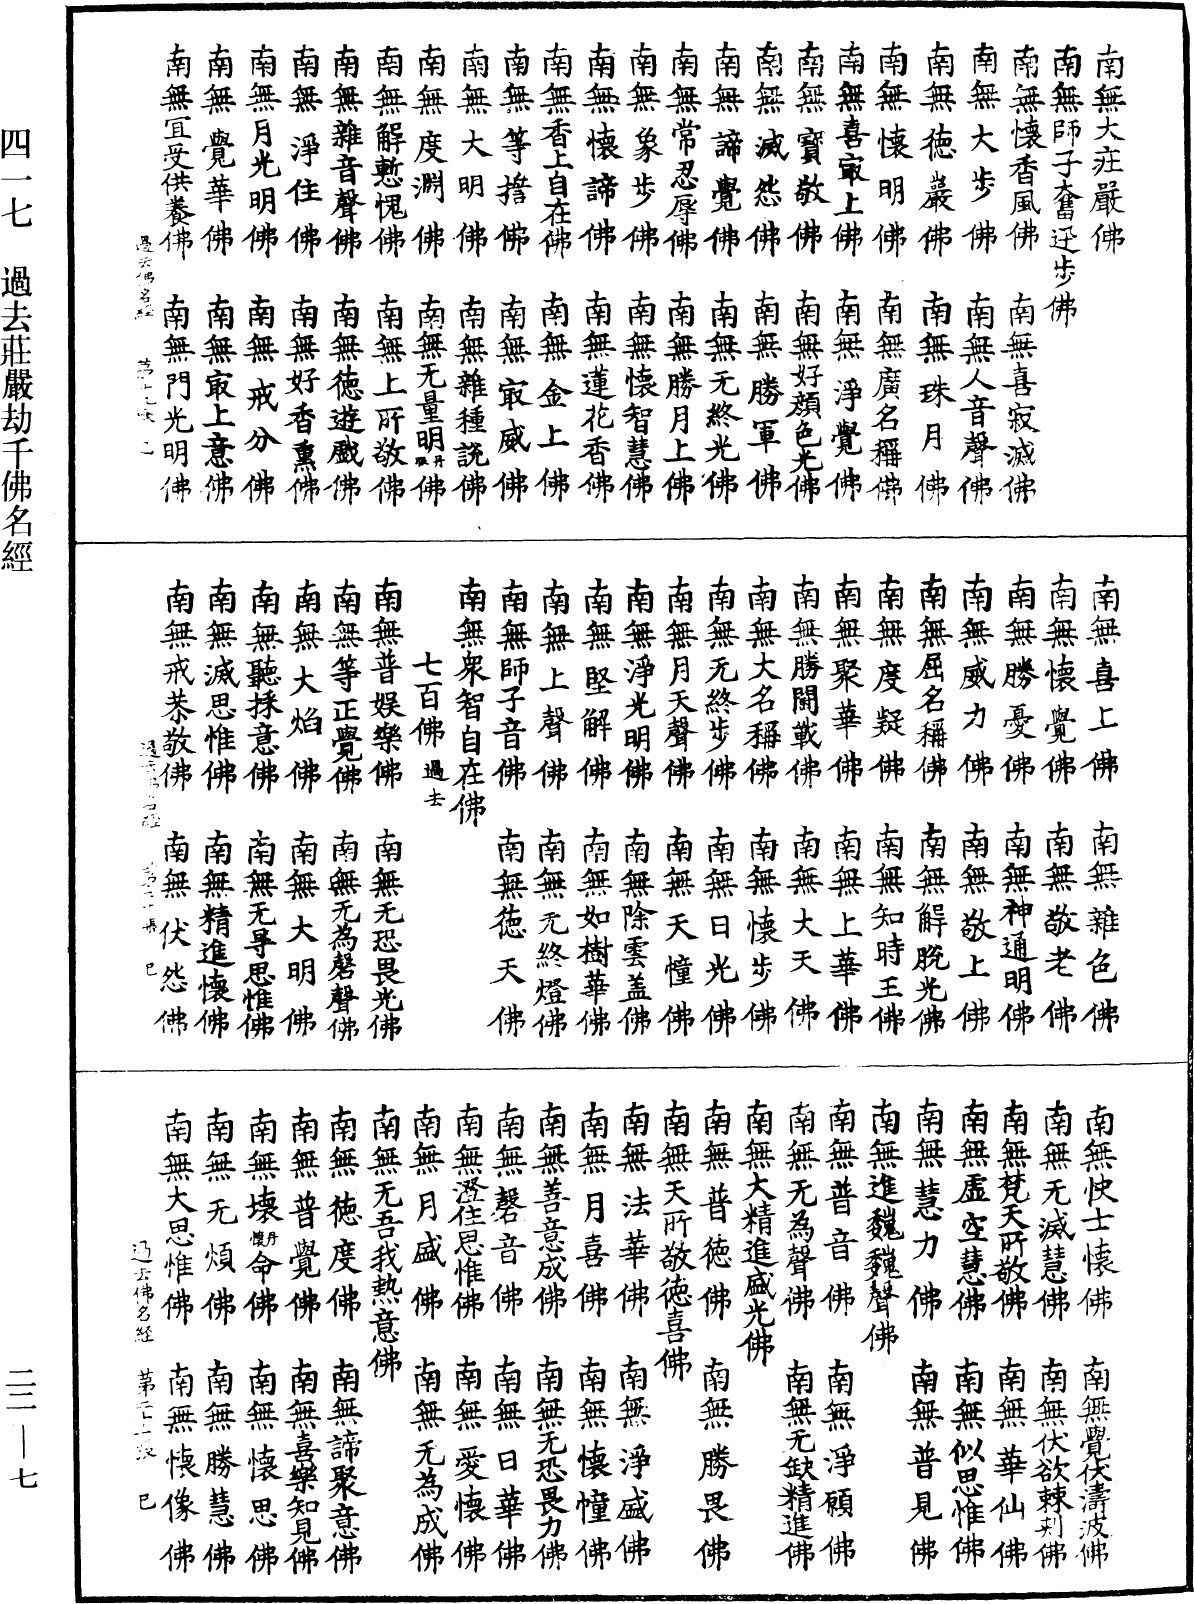 四一七　過去莊嚴劫千佛名經
南無大莊嚴佛
南無師子奮迅步佛
南無懷香風佛　南無喜寂滅佛
南無大步佛　南無人音聲佛
南無德巖佛　南無珠月佛
南無懷明佛　南無廣名稱佛
南無喜㝡上佛　南無淨覺佛
南無寶敬佛　南無好顏色光佛
南無滅怨佛　南無勝軍佛
南無諦覺佛　南無无終光佛
南無常忍辱佛　南無勝月上佛
南無象步佛　南無懷智慧佛
南無懷諦佛　南無蓮花香佛
南無香上自在佛　南無金上佛
南無等擔佛　南無㝡威佛
南無大明佛　南無雜種說佛
南無度淵佛　南無无量明佛
南無解慙愧佛　南無上所敬佛
南無雜音聲佛　南無德遊戲佛
南無淨住佛　南無好香熏佛
南無月光明佛　南無戒分佛
南無覺華佛　南無㝡上意佛
南無宜受供養佛　南無門光明佛
南無喜上佛　南無雜色佛
南無懷覺佛　南無敬老佛
南無勝憂佛　南無神通明佛
南無威力佛　南無敬上佛
南無屈名稱佛　南無解脫光佛
南無度疑佛　南無知時王佛
南無聚華佛　南無上華佛
南無勝鬪戰佛　南無大天佛
南無大名稱佛　南無懷步佛
南無无終步佛　南無日光佛
南無月天聲佛　南無天憧佛
南無淨光明佛　南無除雲盖佛
南無堅解佛　南無如樹華佛
南無上聲佛　南無无終燈佛
南無師子音佛　南無德天佛
南無衆智自在佛
七百佛過去
南無普娛樂佛　南無无恐畏光佛
南無等正覺佛　南無无為磬聲佛
南無大焰佛　南無大明佛
南無聽採意佛　南無无㝵思惟佛
南無滅思惟佛　南無精進懷佛
南無戒恭敬佛　南無伏怨佛
南無快士懷佛　南無覺伏濤波佛
南無无滅慧佛　南無伏欲棘刺佛
南無梵天所敬佛　南無華仙佛
南無虛空慧佛　南無似思惟佛
南無慧力佛　南無普見佛
南無進巍巍聲佛
南無普音佛　南無淨願佛
南無无為聲佛　南無无缺精進佛
南無大精進盛光佛
南無普德佛　南無勝畏佛
南無天所敬德喜佛
南無法華佛　南無淨盛佛
南無月喜佛　南無懷憧佛
南無善意成佛　南無无恐畏力佛
南無磬音佛　南無日華佛
南無澄住思惟佛　南無愛懷佛
南無月盛佛　南無无為成佛
南無无吾我熱意佛
南無德度佛　南無諦聚意佛
南無普覺佛　南無喜樂知見佛
南無壞丹懷命佛　南無懷思佛
南無无煩佛　南無勝慧佛
南無大思惟佛　南無懷像佛
二二—七